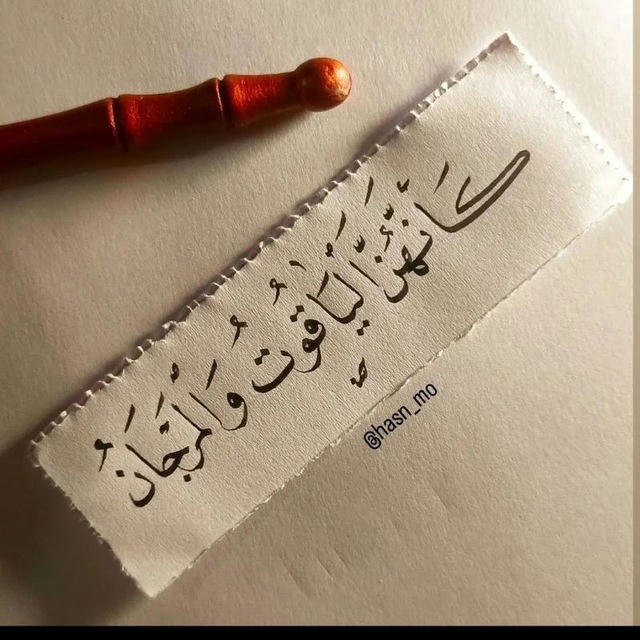 كَأَنَّهُنَّ الْيَاقُوتُ وَالْمَرْجَانُ
@hasn_mo